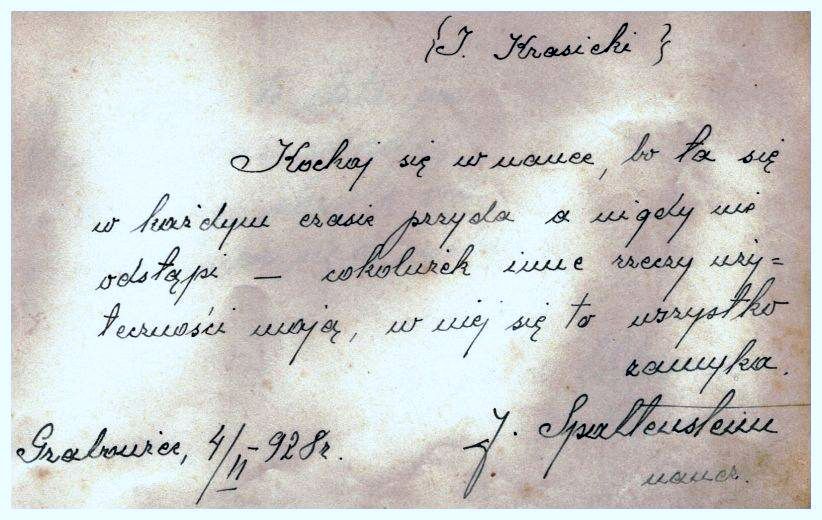 {I. Krasicki}
Kochaj się w nauce, bo ta się
w każdym czasie przyda a nigdy nie
odstąpi — cokolwiek inne rzeczy uży=
teczności mają, w niej się to wszystko
zamyka.
Grabowiec, 4/II-928r.
J. Spaltenstein
naucz.